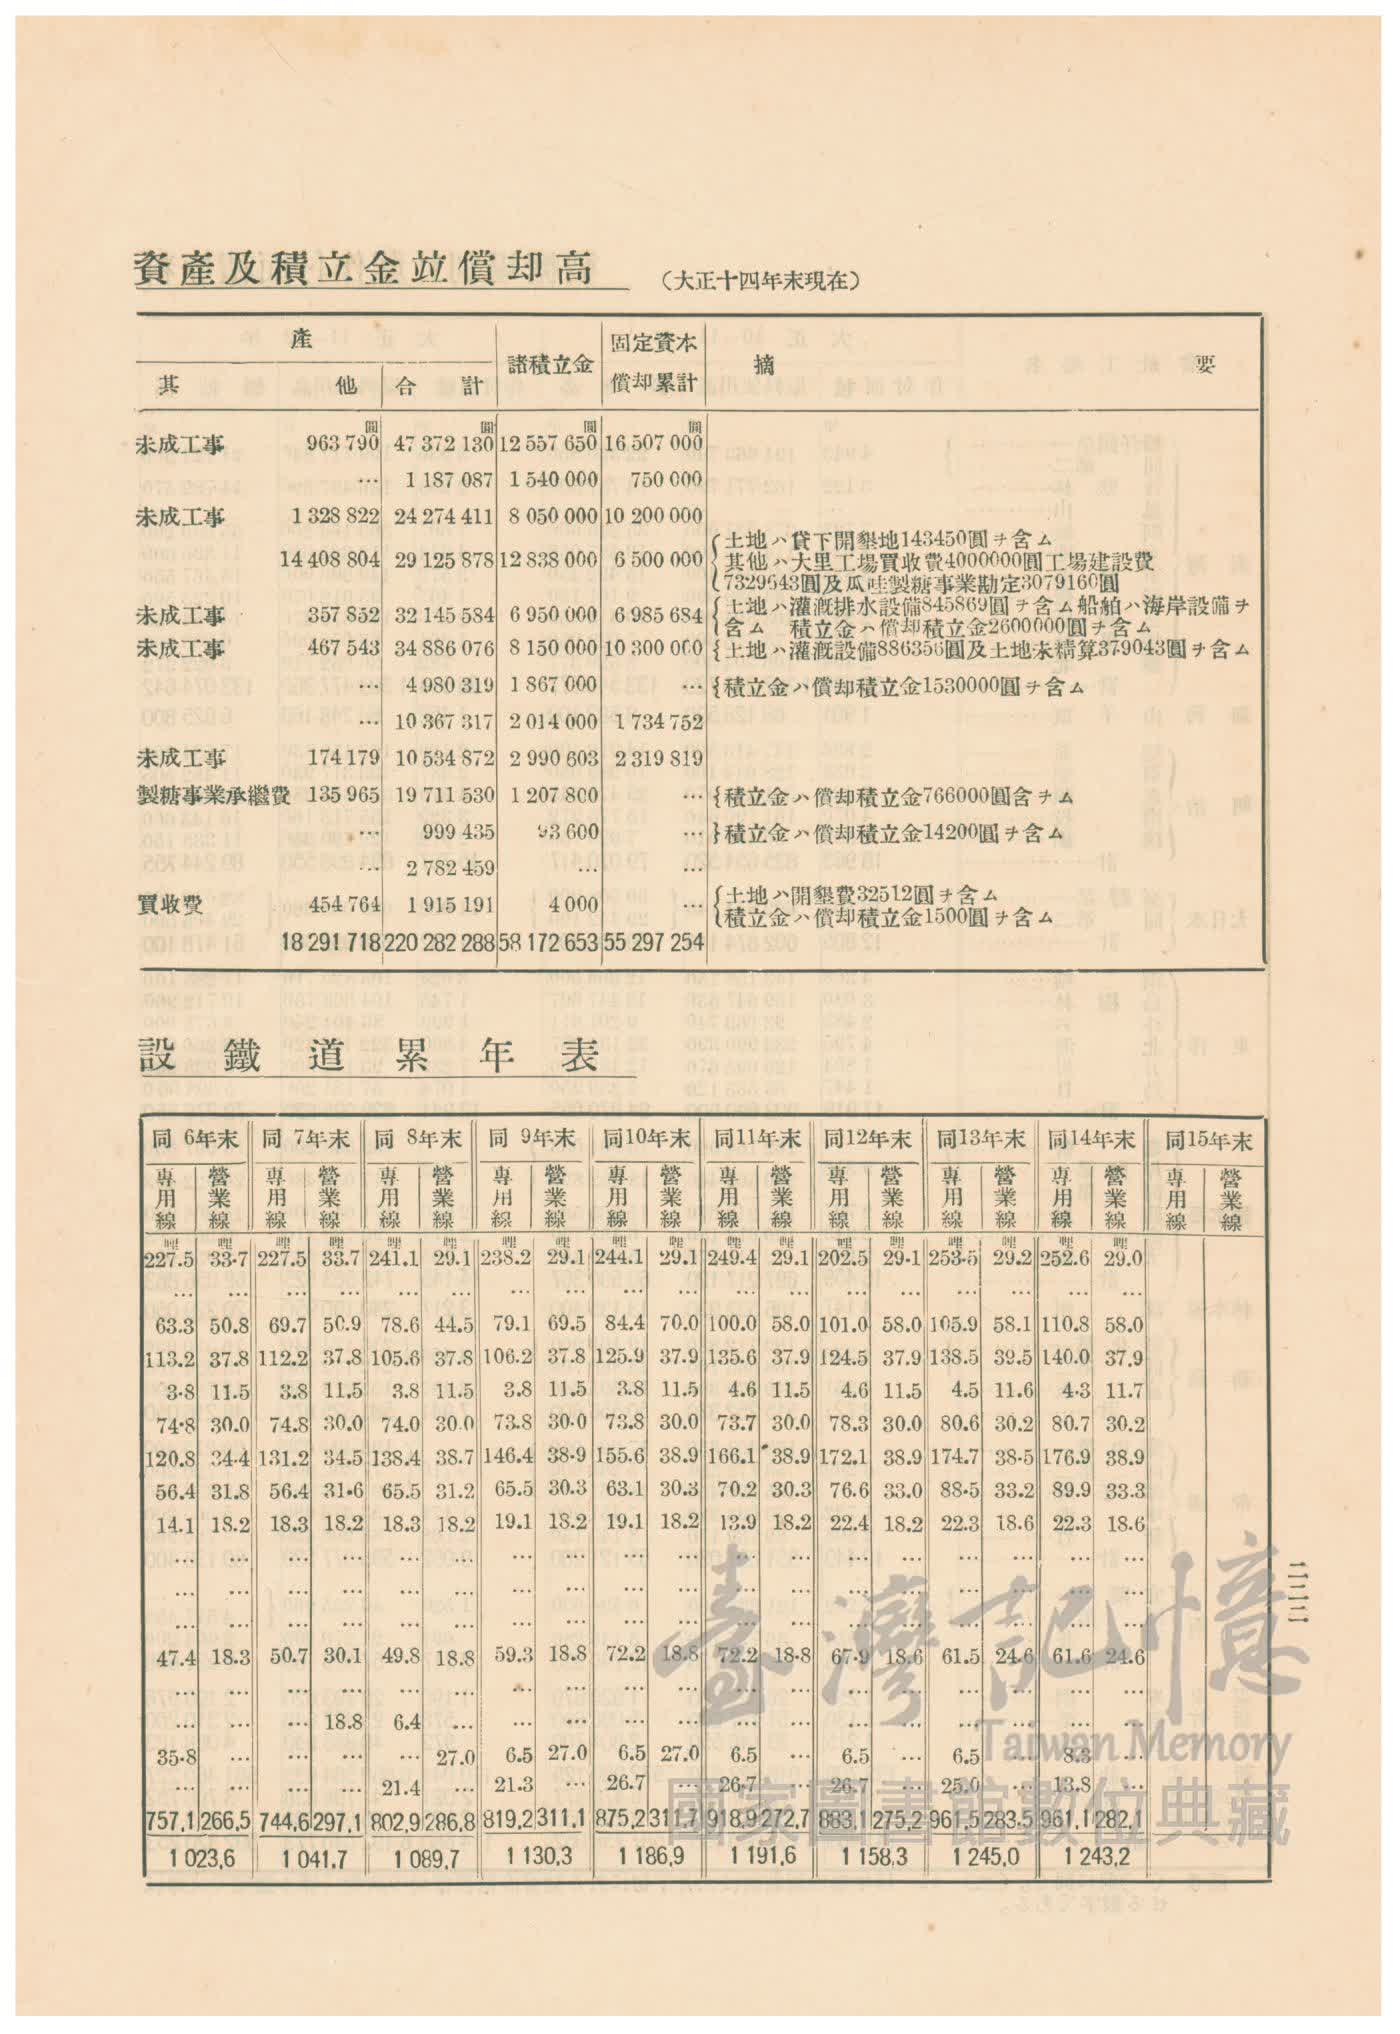 資產及積立金竝償却高 (大正十四年末現在)
產 諸積立金 固定資本償却累計 摘要
其他 合計
圓 圓 圓 圓
未成工事 963 790 47 372 130 12 557 650 16 507 000
… 1 187 087 1 540 000 750 000
未成工事 1 328 822 24 274 411 8 050 000 10 200 000
14 408 804 29 125 878 12 838 000 6 500 000
土地ハ貸下開墾地143450圓ヲ含ム
其他ハ大里工場買收費4000000圓工場建設費
7329643圓及瓜哇製糖事業勘定3079160圓
未成工事 357 852 32 145 584 6 950 000 6 985 684
土地ハ灌漑排水設備845869圓ヲ含ム船舶ハ海岸設備ヲ
含ム 積立金ハ償却積立金2600000圓ヲ含ム
未成工事 467 543 34 886 076 8 150 000 10 300 000 土地ハ灌漑設備886356圓及土地未精算379043圓ヲ含ム
… 4 980 319 1 867 000 … 積立金ハ償却積立金1530000圓ヲ含ム
… 10 367 317 2 014 000 1 734 752
未成工事 174 179 10 534 872 2 990 603 2 319 819
製糖事業承繼費 135 965 19 711 530 1 207 800 … 積立金ハ償却積立金766000圓含ヲム
… 999 435 93 600 … 積立金ハ償却積立金14200圓ヲ含ム
… 2 782 459 … …
買收費 454 764 1 915 191 4 000 …
土地ハ開墾費32512圓ヲ含ム
積立金ハ償却積立金1500圓ヲ含ム
18 291 718 220 282 288 58 172 653 55 297 254
設鐵道累年表
同 6年末 同 7年末 同 8年末 同 9年末 同10年末 同11年末 同12年末 同13年末 同14年末 同15年末
專用線 營業線 專用線 營業線 專用線 營業線 專用線 營業線 專用線 營業線 專用線 營業線 專用線 營業線 專用線 營業線 專用線 營業線 專用線 營業線
哩 哩 哩 哩 哩 哩 哩 哩 哩 哩 哩 哩 哩 哩 哩 哩 哩 哩
227.5 33·7 227.5 33.7 241.1 29.1 238.2 29.1 244.1 29.1 249.4 29.1 202.5 29·1 253·5 29.2 252.6 29.0
… … … … … … … … … … … … … … … … … …
63.3 50.8 69.7 50.9 78.6 44.5 79.1 69.5 84.4 70.0 100.0 58.0 101.0 58.0 105.9 58.1 110.8 58.0
113.2 37.8 112.2 37.8 105.6 37.8 106.2 37.8 125.9 37.9 135.6 37.9 124.5 37.9 138.5 39.5 140.0 37.9
3·8 11.5 3.8 11.5 3.8 11.5 3.8 11.5 3.8 11.5 4.6 11.5 4.6 11.5 4.5 11.6 4·3 11.7
74·8 30.0 74.8 30.0 74.0 30.0 73.8 30·0 73.8 30.0 73.7 30.0 78.3 30.0 80.6 30.2 80.7 30.2
120.8 34·4 131.2 34.5 138.4 38.7 146.4 38·9 155.6 38.9 166.1 38.9 172.1 38.9 174.7 38·5 176.9 38.9
56.4 31.8 56.4 31·6 65.5 31.2 65.5 30.3 63.1 30.3 70.2 30.3 76.6 33.0 88·5 33.2 89.9 33.3
14.1 18.2 18.3 18.2 18.3 18.2 19.1 18.2 19.1 18.2 13.9 18.2 22.4 18.2 22.3 18.6 22.3 18.6
… … … … … … … … … … … … … … … … … …
… … … … … … … … … … … … … … … … … …
… … … … … … … … … … … … … … … … … …
47.4 18.3 50.7 30.1 49.8 18.8 59.3 18.8 72.2 18.8 72.2 18·8 67·9 18.6 61.5 24.6 61.6 24.6
… … … … … … … … … … … … … … … … … …
… … … 18.8 6.4 … … … … … … … … … … … … …
35·8 … … … … 27.0 6.5 27.0 6.5 27.0 6.5 … 6.5 … 6.5 … 8.3 …
… … … … 21.4 … 21.3 … 26.7 … 26.7 … 26.7 … 25.0 … 13.8 …
757,1 266,5 744,6 297,1 802,9 286,8 819,2 311,1 875,2 311,7 918,9 272,7 883,1 275,2 961,5 283·5 961,1 282,1
1 023,6 1 041.7 1 089,7 1 130,3 1 186,9 1 191,6 1 158,3 1 245,0 1 243,2
臺灣記憶
Taiwan Memory
國家圖書館數位典藏